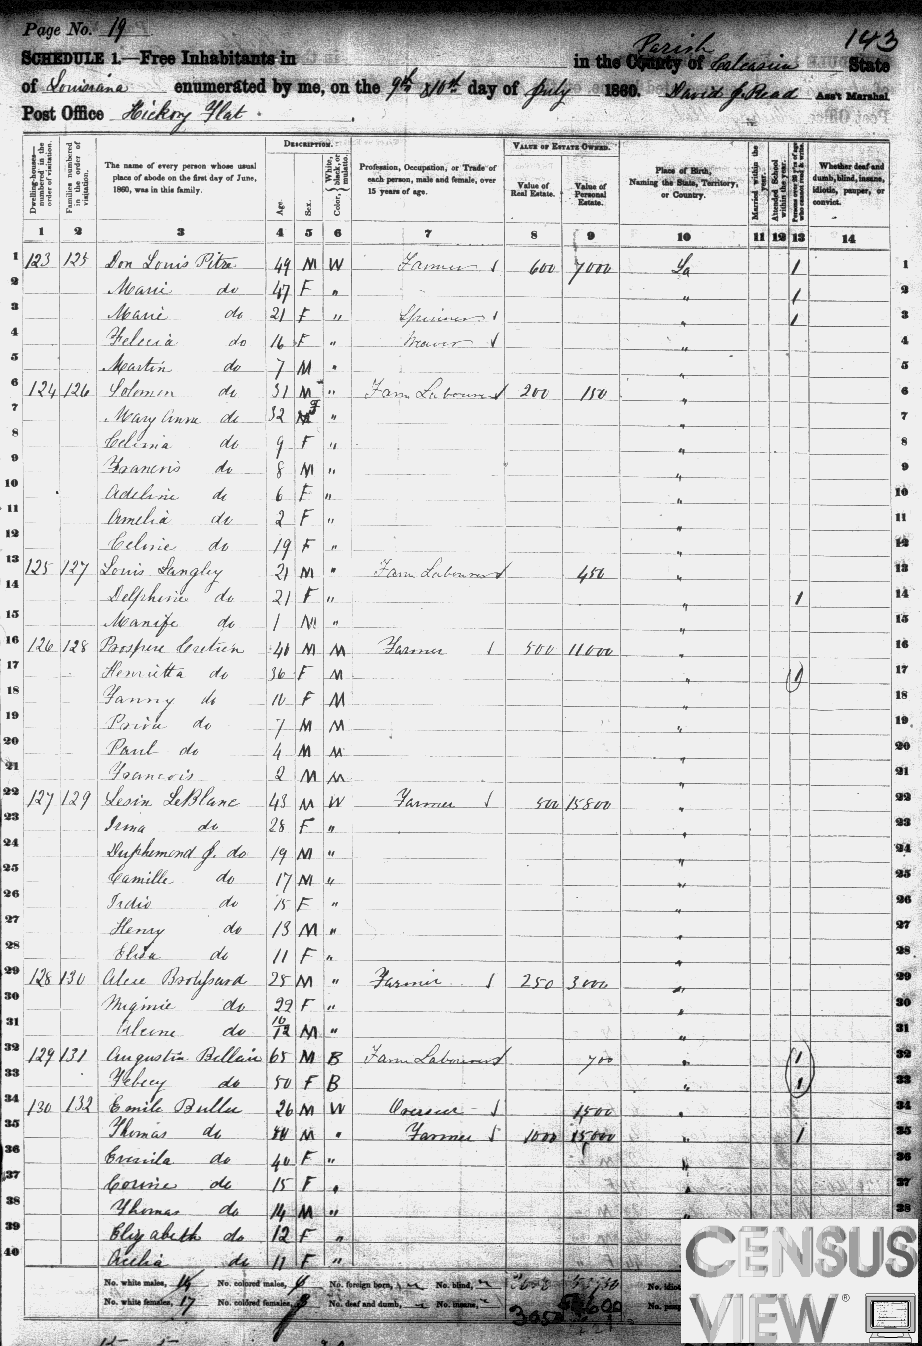 Page No. 19
143
SCHEDULE 1.—Free Inhabitants in in the County Parish of Calcasieu State
of Louisiana enumerated by me, on the 9th &10th day of July 1860. David J. Read Ass't Marshal.
Post Office Hickory Flat
Dwelling-houses—numbered in the order of visitation.
Families numbered in the order of visitation.
The name of every person whose usual place of abode on the first day of June, 1860, was in this family.
DESCRIPTION.
Age.
Sex.
Color, White, black, or mulatto.
Profession, Occupation, or Trade of each person, male and female, over 15 years of age.
VALUE OF ESTATE OWNED.
Value of Real Estate.
Value of Personal Estate.
Place of Birth, Naming the State, Territory, or Country.
Married within the year.
Attended School within the year.
Persons over 20 y'rs of age who cannot read & write.
Whether deaf and dumb, blind, insane, idiotic, pauper, or convict.
1 2 3 4 5 6 7 8 9 10 11 12 13 14
1 123 125 Don Louis Pitre 49 M W Farmer 600 7000 La 1 1
2 Marie do 47 F " " 1 2
3 Marie do 21 F " Spinner " 1 3
4 Felecia do 16 F " Weaver " 4
5 Martin do 7 M " " 5
6 124 126 Solomon do 31 M " Farm Labourer 200 150 " 6
7 Mary Anne do 32 F " " 7
8 Celima do 9 F " " 8
9 Francois do 8 M " " 9
10 Adeline do 6 F " " 10
11 Amelia do 2 F " " 11
12 Celine do 19 F " " 12
13 125 127 Louis Langley 21 M " Farm Labourer 450 " 13
14 Delphine do 21 F " " 1 14
15 do 1 M " " 15
16 126 128 Prospere Cretien 40 M M Farmer 500 11000 " 16
17 Henrietta do 36 F M " 1 17
18 Fanny do 10 F M " 18
19 do 7 M M " 19
20 Paul do 4 M M " 20
21 Francois 2 M M " 21
22 127 129 Lesin LeBlanc 43 M W Farmer 500 15800 " 22
23 Irma do 28 F " " 23
24 Duphemond J. do 19 M " " 24
25 Camille do 17 M " " 25
26 do 15 F " " 26
27 Henry do 13 M " " 27
28 Eliza do 11 F " " 28
29 128 130 Broussard 25 M " Farmer 250 3000 " 29
30 do 22 F " " 30
31 do 10/12 M " " 31
32 129 131 Augustin Bellair 65 M B Farm Labourer 700 " 1 32
33 Febecy do 50 F B " 1 33
34 130 132 Emile Buller 26 M W Overseer 1500 " 34
35 Thomas do M " Farmer 1000 15000 " 1 35
36 do 40 F " " 36
37 Corine do 15 F " " 37
38 Thomas do 14 M " " 38
39 Elizabeth do 12 F "
40 do 11 F "
No. white males, 16 No. colored males, 6 No. foreign born, No. blind,
No. white females, 17 No. colored females, 3 No. deaf and dumb, No. insane,
CENSUS
VIEW®